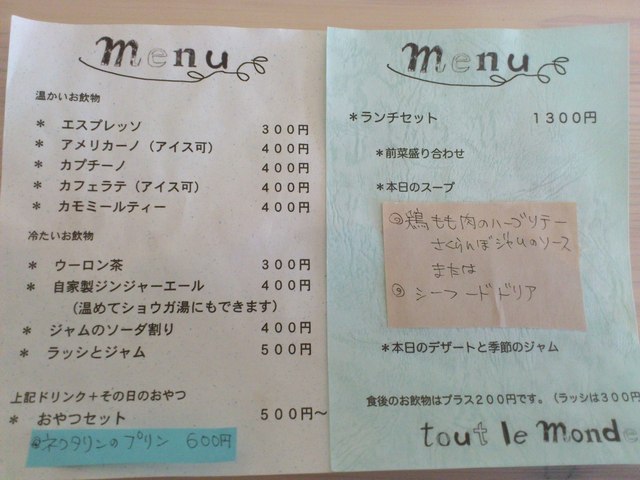 menu
温かいお飲物
* エスプレッソ 300円
* アメリカーノ（アイス可） 400円
* カプチーノ 400円
* カフェラテ（アイス可） 400円
* カモミールティー 400円
冷たいお飲物
* ウーロン茶 300円
* 自家製ジンジャーエール 400円
（温めてショウガ湯にもできます）
* ジャムのソーダ割り 400円
* ラッシとジャム 500円
上記ドリンク＋その日のおやつ
* おやつセット 500円〜
ネクタリンのプリン 600円
menu
*ランチセット 1300円
*前菜盛り合わせ
*本日のスープ
鶏もも肉のハーブソテー
さくらんぼジャムのソース
または
シーフードドリア
*本日のデザートと季節のジャム
食後のお飲物はプラス200円です。（ラッシは300円
tout le Monde